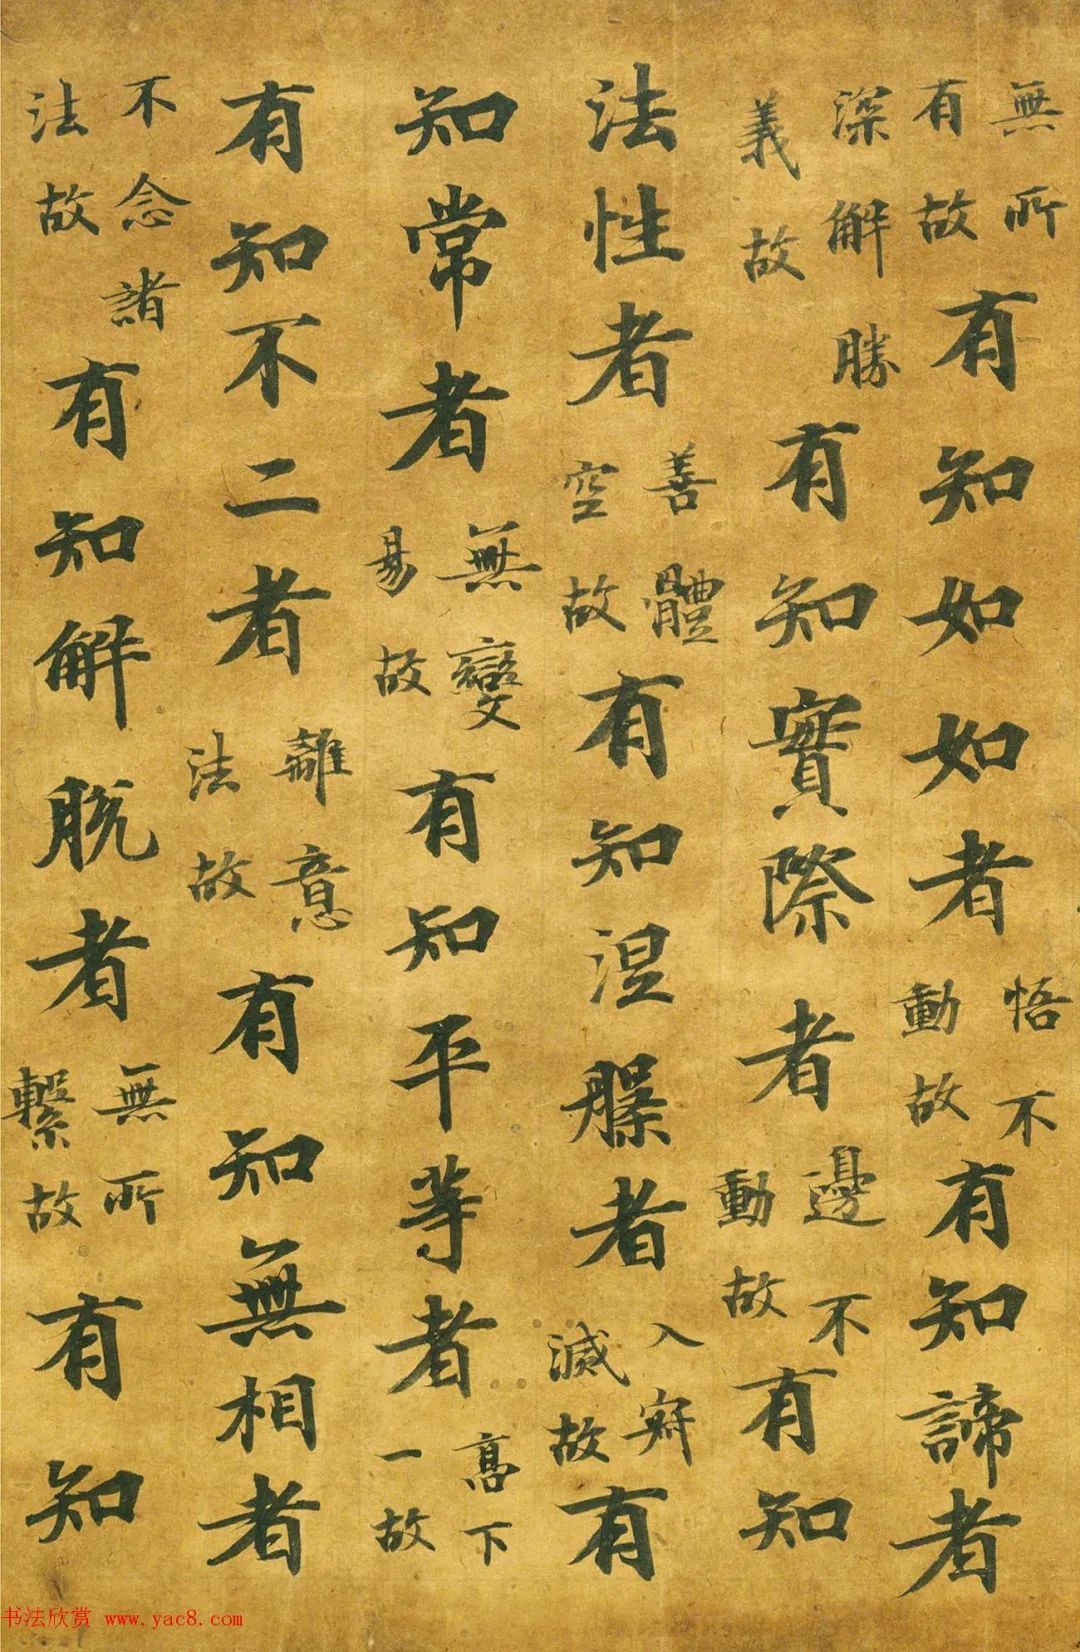 無所有故有知如如者悟不動故有知諦者
深解勝義故有知實際者邊不動故有知
法性者善體空故有知涅槃者入寂滅故有
知常者無變易故有知平等者高下一故
有知不二者離意法故有知無相者
不念諸法故有知解脱者無所繫故有知
书法欣赏 www.yac8.com